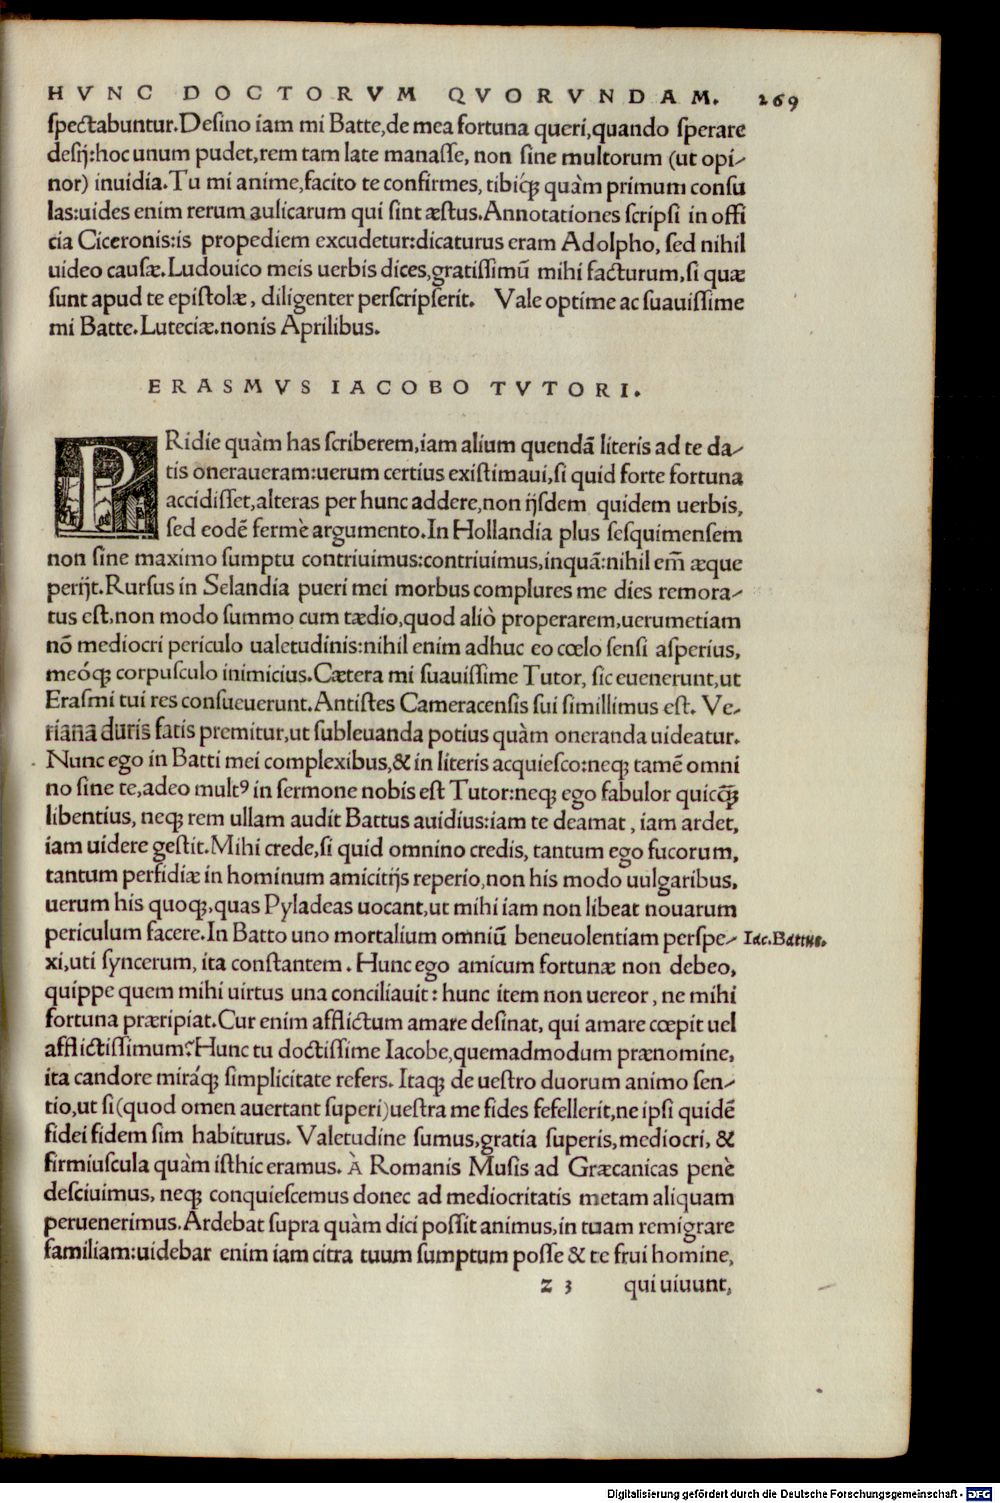 HVNC DOCTORVM QVORVNDAM. 269
spectabuntur.Desino iam mi Batte,de mea fortuna queri,quando sperare
desij:hoc unum pudet,rem tam late manasse, non sine multorum (ut opi-
nor) inuidia.Tu mi anime,facito te confirmes, tibiq́; quàm primum consu
las:uides enim rerum aulicarum qui sint æstus.Annotationes scripsi in offi
cia Ciceronis:is propediem excudetur:dicaturus eram Adolpho, sed nihil
uideo causæ.Ludouico meis uerbis dices,gratissimū mihi facturum,si quæ
sunt apud te epistolæ, diligenter perscripserit. Vale optime ac suauissime
mi Batte.Luteciæ.nonis Aprilibus.
ERASMVS IACOBO TVTORI.
PRidie quàm has scriberem,iam alium quendā literis ad te da-
tis oneraueram:uerum certius existimaui,si quid forte fortuna
accidisset,alteras per hunc addere,non ijsdem quidem uerbis,
sed eodē fermè argumento.In Hollandia plus sesquimensem
non sine maximo sumptu contriuimus:contriuimus,inquā:nihil em̄ æque
perijt.Rursus in Selandia pueri mei morbus complures me dies remora-
tus est,non modo summo cum tædio,quod aliò properarem,uerumetiam
nō mediocri periculo ualetudinis:nihil enim adhuc eo cœlo sensi asperius,
meóq; corpusculo inimicius.Cætera mi suauissime Tutor, sic euenerunt,ut
Erasmi tui res consueuerunt.Antistes Cameracensis sui simillimus est. Ve-
riana duris fatis premitur,ut subleuanda potius quàm oneranda uideatur.
Nunc ego in Batti mei complexibus,& in literis acquiesco:neq; tamē omni
no sine te,adeo multꝰ in sermone nobis est Tutor:neq; ego fabulor quicq̄;
libentius, neq; rem ullam audit Battus auidius:iam te deamat, iam ardet,
iam uidere gestit.Mihi crede,si quid omnino credis, tantum ego fucorum,
tantum perfidiæ in hominum amicitijs reperio,non his modo uulgaribus,
uerum his quoq;,quas Pyladeas uocant,ut mihi iam non libeat nouarum
periculum facere.In Batto uno mortalium omniū beneuolentiam perspe- Iac.Battus.
xi,uti syncerum, ita constantem. Hunc ego amicum fortunæ non debeo,
quippe quem mihi uirtus una conciliauit: hunc item non uereor, ne mihi
fortuna præripiat.Cur enim afflictum amare desinat, qui amare cœpit uel
afflictissimum?Hunc tu doctissime Iacobe,quemadmodum prænomine,
ita candore miráq; simplicitate refers. Itaq; de uestro duorum animo sen-
tio,ut si(quod omen auertant superi)uestra me fides fefellerit,ne ipsi quidē
fidei fidem sim habiturus. Valetudine sumus,gratia superis,mediocri, &
firmiuscula quàm isthic eramus. À Romanis Musis ad Græcanicas penè
desciuimus, neq; conquiescemus donec ad mediocritatis metam aliquam
peruenerimus.Ardebat supra quàm dici possit animus,in tuam remigrare
familiam:uidebar enim iam citra tuum sumptum posse & te frui homine,
z 3 qui uiuunt,
Digitalisierung gefördert durch die Deutsche Forschungsgemeinschaft - DFG